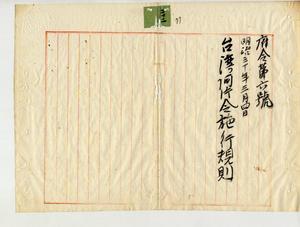 府令第六號
明治三十年三月四日
台湾阿片令施行規則